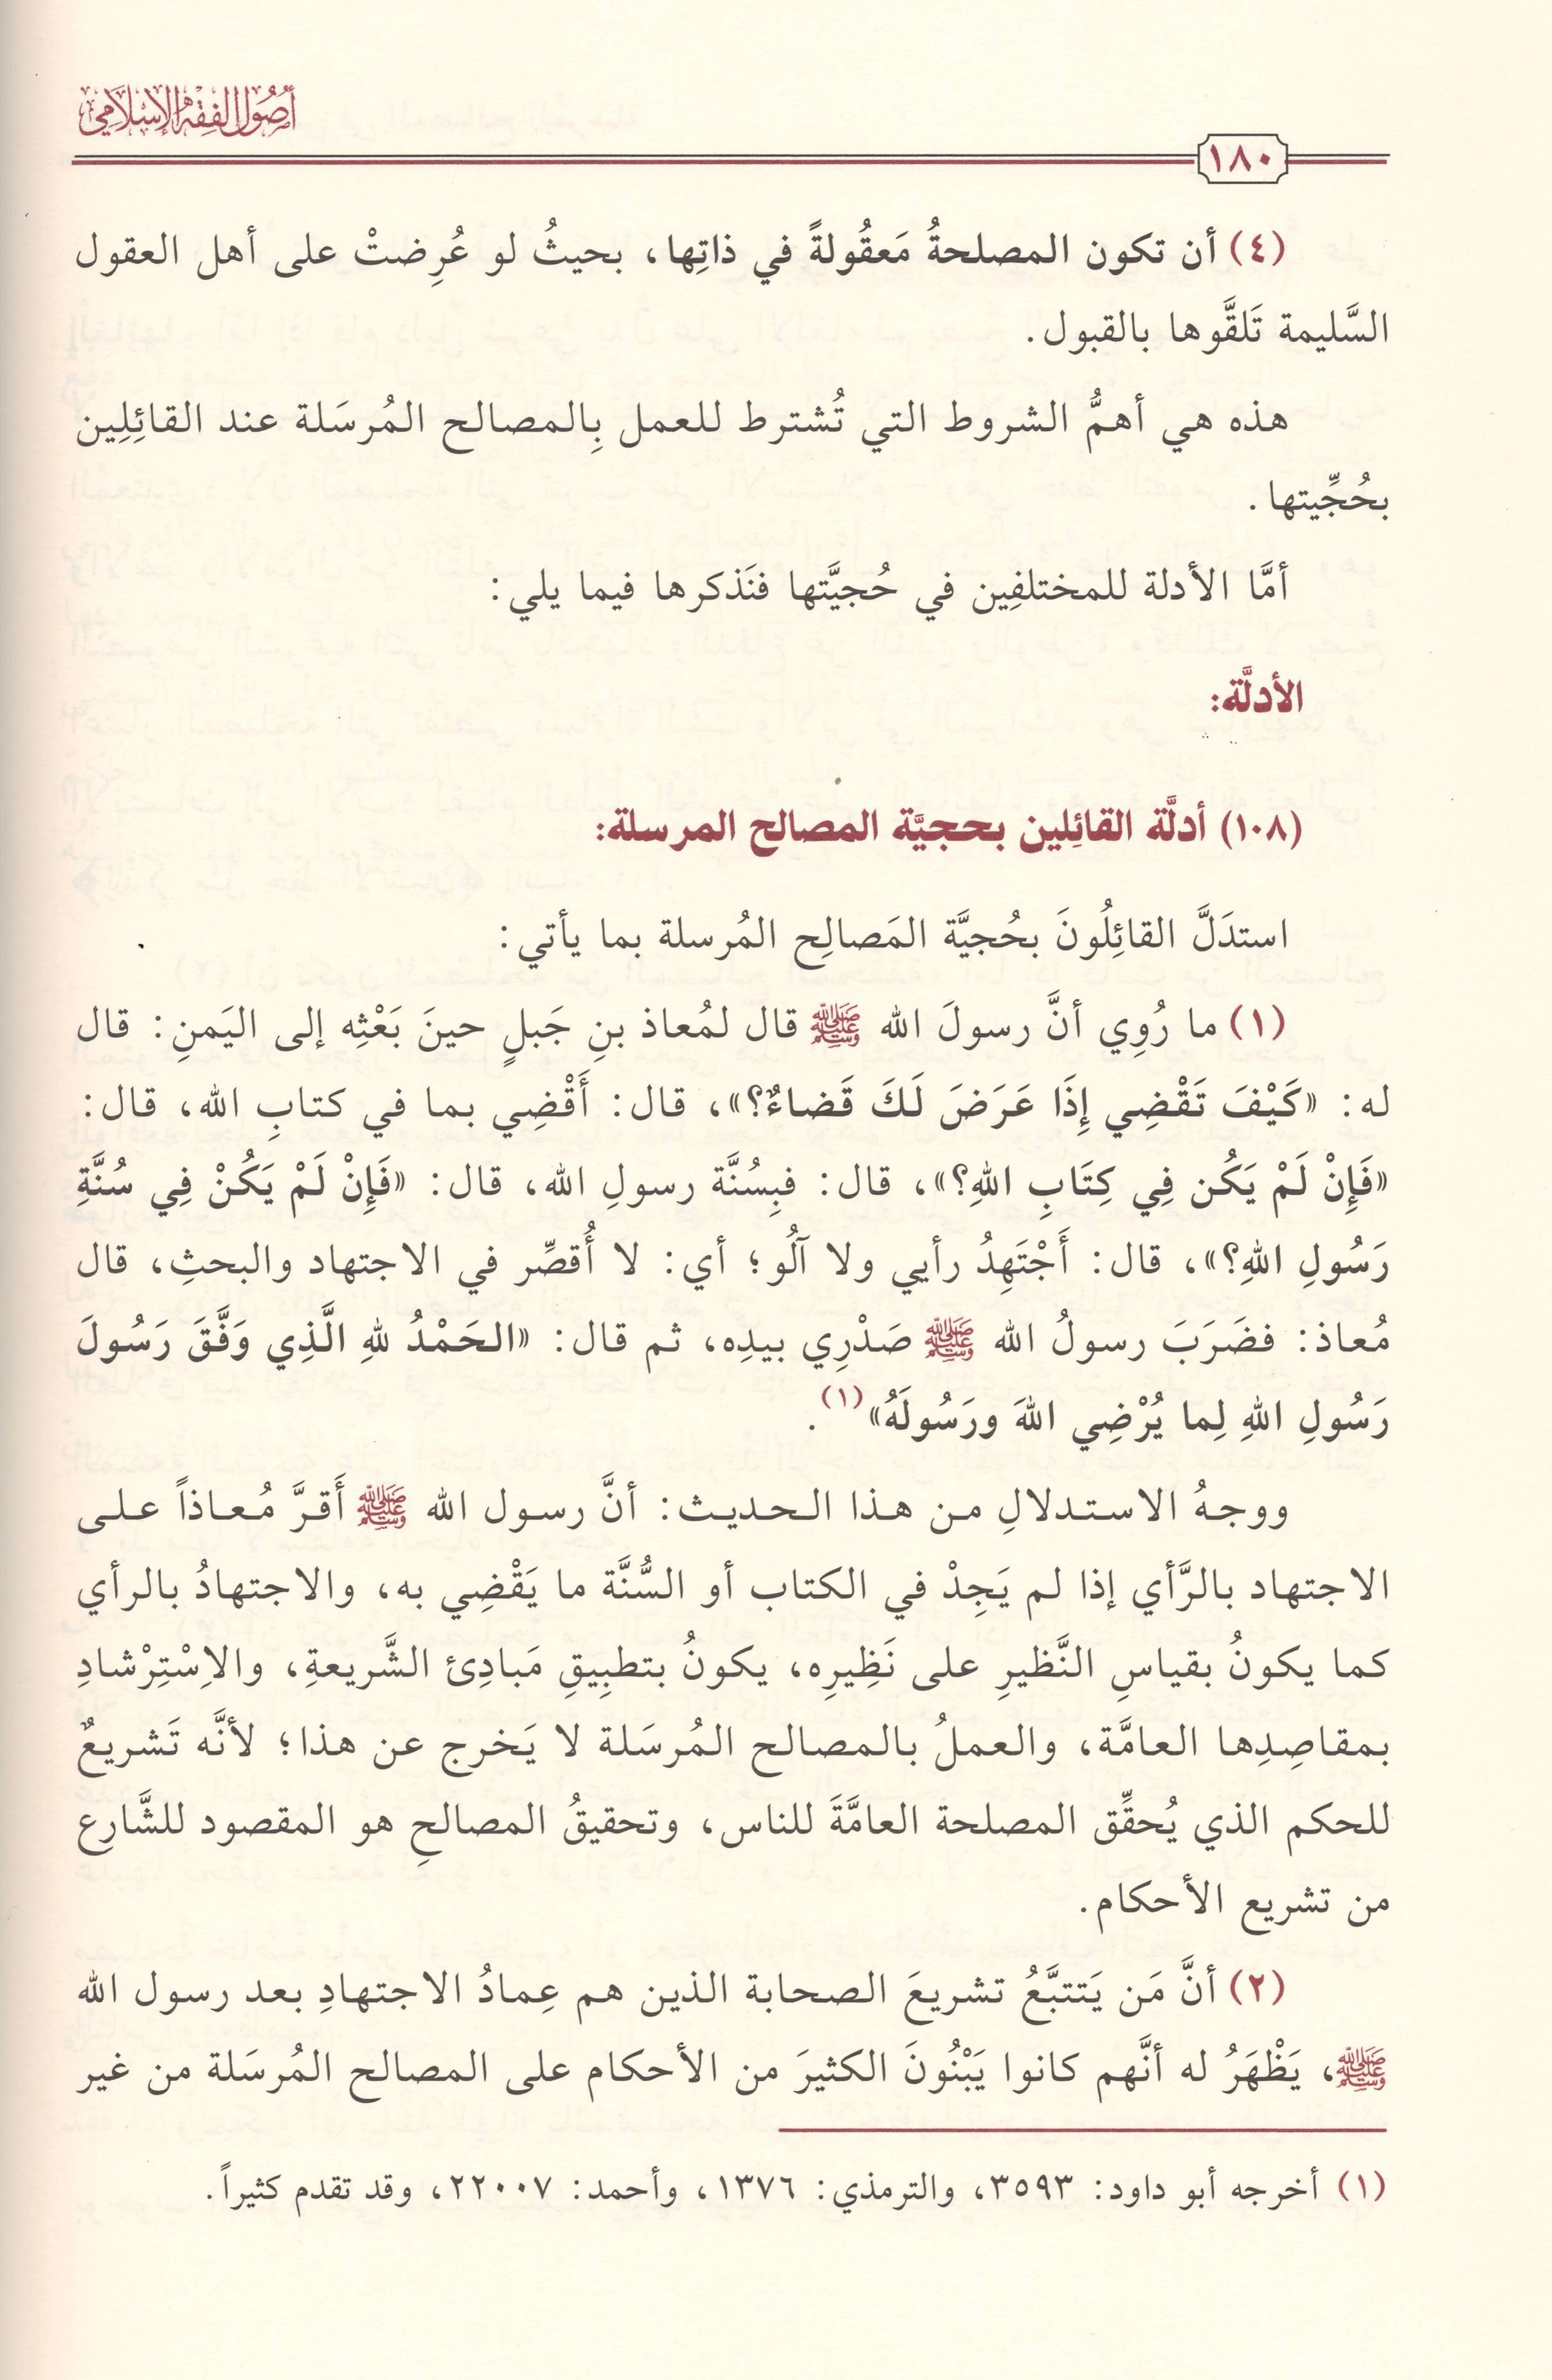 أُصُول الفِقْه الإِسْلَامِي
١٨٠
(٤) أن تكون المصلحةُ مَعقُولةً في ذاتِها، بحيثُ لو عُرِضتْ على أهل العقول
السَّليمة تَلقَّوها بالقبول.
هذه هي أهمُّ الشروط التي تُشترط للعمل بِالمصالح المُرسَلة عند القائِلِين
بحُجِّيتها.
أمَّا الأدلة للمختلفِين في حُجيَّتها فنَذكرها فيما يلي:
الأدلَّة:
(١٠٨) أدلَّة القائِلين بحجيَّة المصالح المرسلة:
استدَلَّ القائِلُونَ بحُجيَّة المَصالِح المُرسلة بما يأتي:
(١) ما رُوِي أنَّ رسولَ الله ﷺ قال لمُعاذ بنِ جَبلٍ حينَ بَعْثِه إلى اليَمنِ: قال
له: «كَيْفَ تَقْضِي إِذَا عَرَضَ لَكَ قَضاءٌ؟»، قال: أَقْضِي بما في كتابِ الله، قال:
«فَإِنْ لَمْ يَكُن فِي كِتَابِ اللهِ؟»، قال: فبِسُنَّة رسولِ الله، قال: «فَإِنْ لَمْ يَكُنْ فِي سُنَّةِ
رَسُولِ اللهِ؟»، قال: أَجْتَهِدُ رأيي ولا آلُو؛ أي: لا أُقصِّر في الاجتهاد والبحثِ، قال
مُعاذ: فضَرَبَ رسولُ الله ﷺ صَدْرِي بيدِه، ثم قال: «الحَمْدُ للهِ الَّذِي وَفَّقَ رَسُولَ
رَسُولِ اللهِ لِما يُرْضِي اللهَ ورَسُولَهُ»(١).
ووجهُ الاستدلالِ من هذا الحديث: أنَّ رسول الله ﷺ أَقرَّ مُعاذاً على
الاجتهاد بالرَّأي إذا لم يَجِدْ في الكتاب أو السُّنَّة ما يَقْضِي به، والاجتهادُ بالرأي
كما يكونُ بقياسِ النَّظيرِ على نَظِيرِه، يكونُ بتطبِيقِ مَبادِئ الشَّريعةِ، والاِسْتِرْشادِ
بمقاصِدِها العامَّة، والعملُ بالمصالح المُرسَلة لا يَخرج عن هذا؛ لأنَّه تَشريعٌ
للحكم الذي يُحقِّق المصلحة العامَّةَ للناس، وتحقيقُ المصالحِ هو المقصود للشَّارِع
من تشريع الأحكام.
(٢) أنَّ مَن يَتتبَّعُ تشريعَ الصحابة الذين هم عِمادُ الاجتهادِ بعد رسول الله
ﷺ، يَظْهَرُ له أنَّهم كانوا يَبْنُونَ الكثيرَ من الأحكام على المصالح المُرسَلة من غير
(١) أخرجه أبو داود: ٣٥٩٣، والترمذي: ١٣٧٦، وأحمد: ٢٢٠٠٧، وقد تقدم كثيراً.